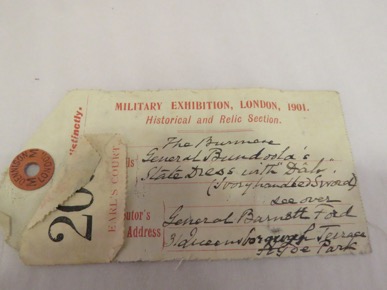 MILITARY EXHIBITION, LONDON, 1901.
Historical and Relic Section.
distinctly.
The Burmese
General Bundoola's
State Dress with Dah.
(Ivory handled Sword)
see over
General Barnett Ford
31 Queensborough Terrace
Hyde Park
is
butor's
Address
EARL'S COURT
20
DENNISON